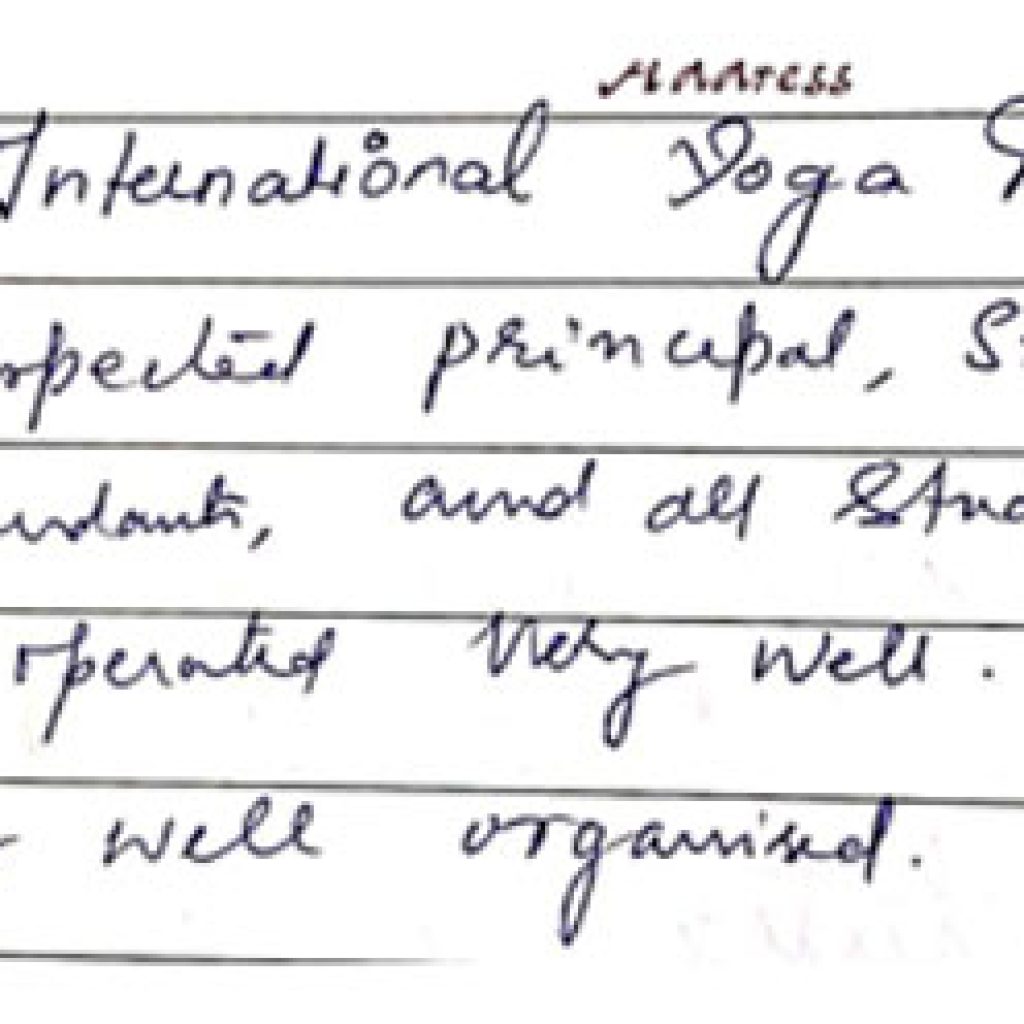 Address
International Yoga
spected principal, S
endants, and all Stud
operated very well.
well organised.